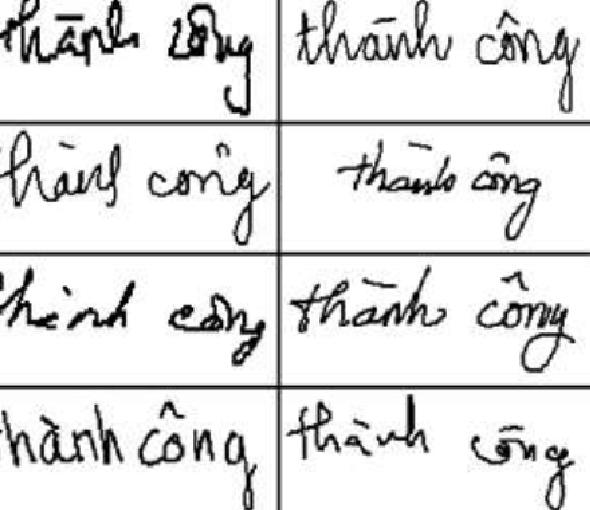 thành công thành công
hành công thành công
hành công thành công
hành công thành công